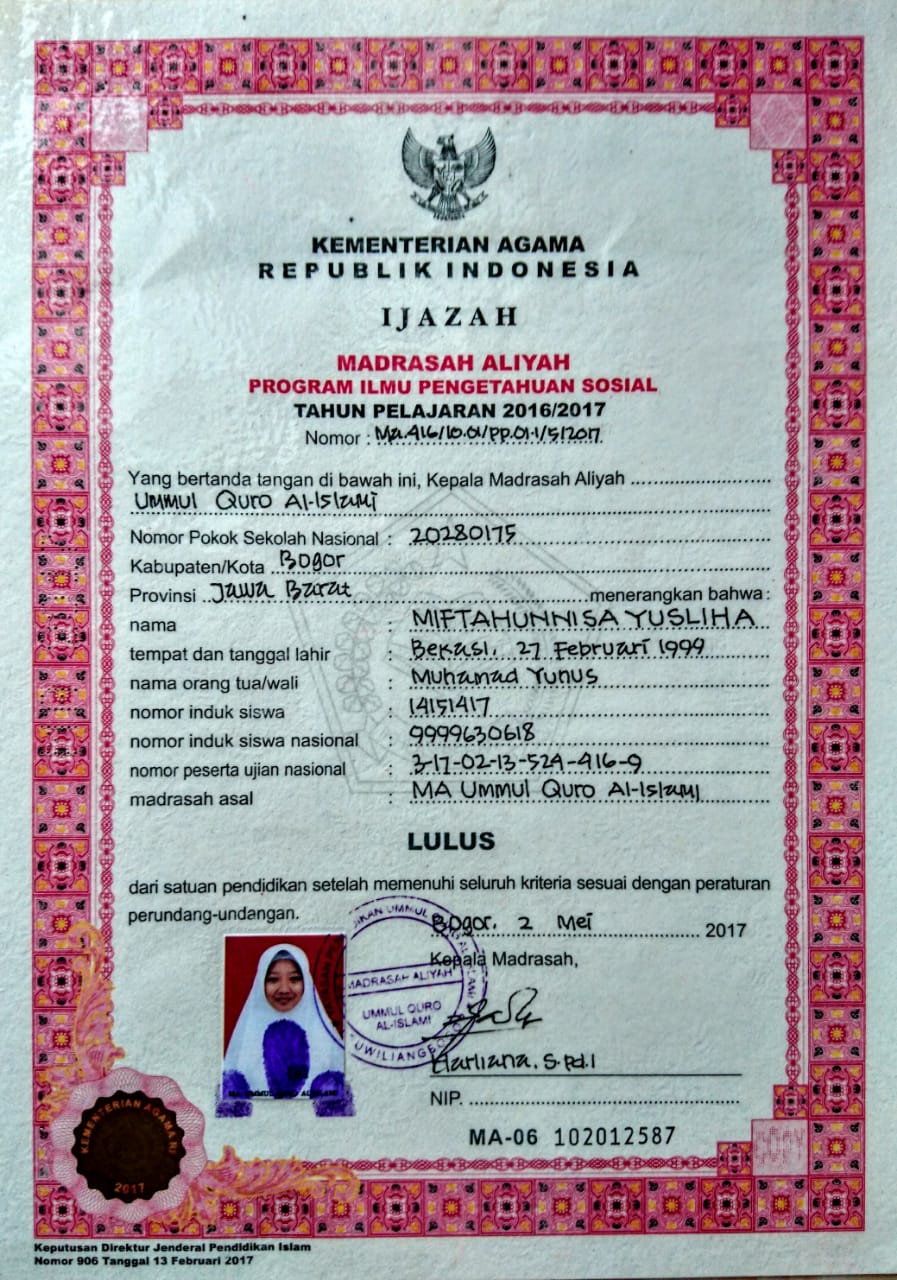 KEMENTERIAN AGAMA
REPUBLIK INDONESIA
IJAZAH
MADRASAH ALIYAH
PROGRAM ILMU PENGETAHUAN SOSIAL
TAHUN PELAJARAN 2016/2017
Nomor : Ma.416/10.01/PP.01.1/5/2017
Yang bertanda tangan di bawah ini, Kepala Madrasah Aliyah
Ummul Quro Al-Islami
Nomor Pokok Sekolah Nasional : 20280175
Kabupaten/Kota Bogor
Provinsi Jawa Barat menerangkan bahwa :
nama : MIFTAHUNNISA YUSLIHA
tempat dan tanggal lahir : Bekasi, 27 Februari 1999
nama orang tua/wali : Muhamad Yunus
nomor induk siswa : 14151417
nomor induk siswa nasional : 9999630618
nomor peserta ujian nasional : 3-17-02-13-524-416-9
madrasah asal : MA Ummul Quro Al-Islami
LULUS
dari satuan pendidikan setelah memenuhi seluruh kriteria sesuai dengan peraturan
perundang-undangan.
Bogor, 2 Mei 2017
Kepala Madrasah,
MADRASAH ALIYAH
UMMUL QURO
AL-ISLAMI
Harliana. S.Pd.I
NIP.
MA-06 102012587
KEMENTERIAN AGAMA RI
2017
Keputusan Direktur Jenderal Pendidikan Islam
Nomor 906 Tanggal 13 Februari 2017